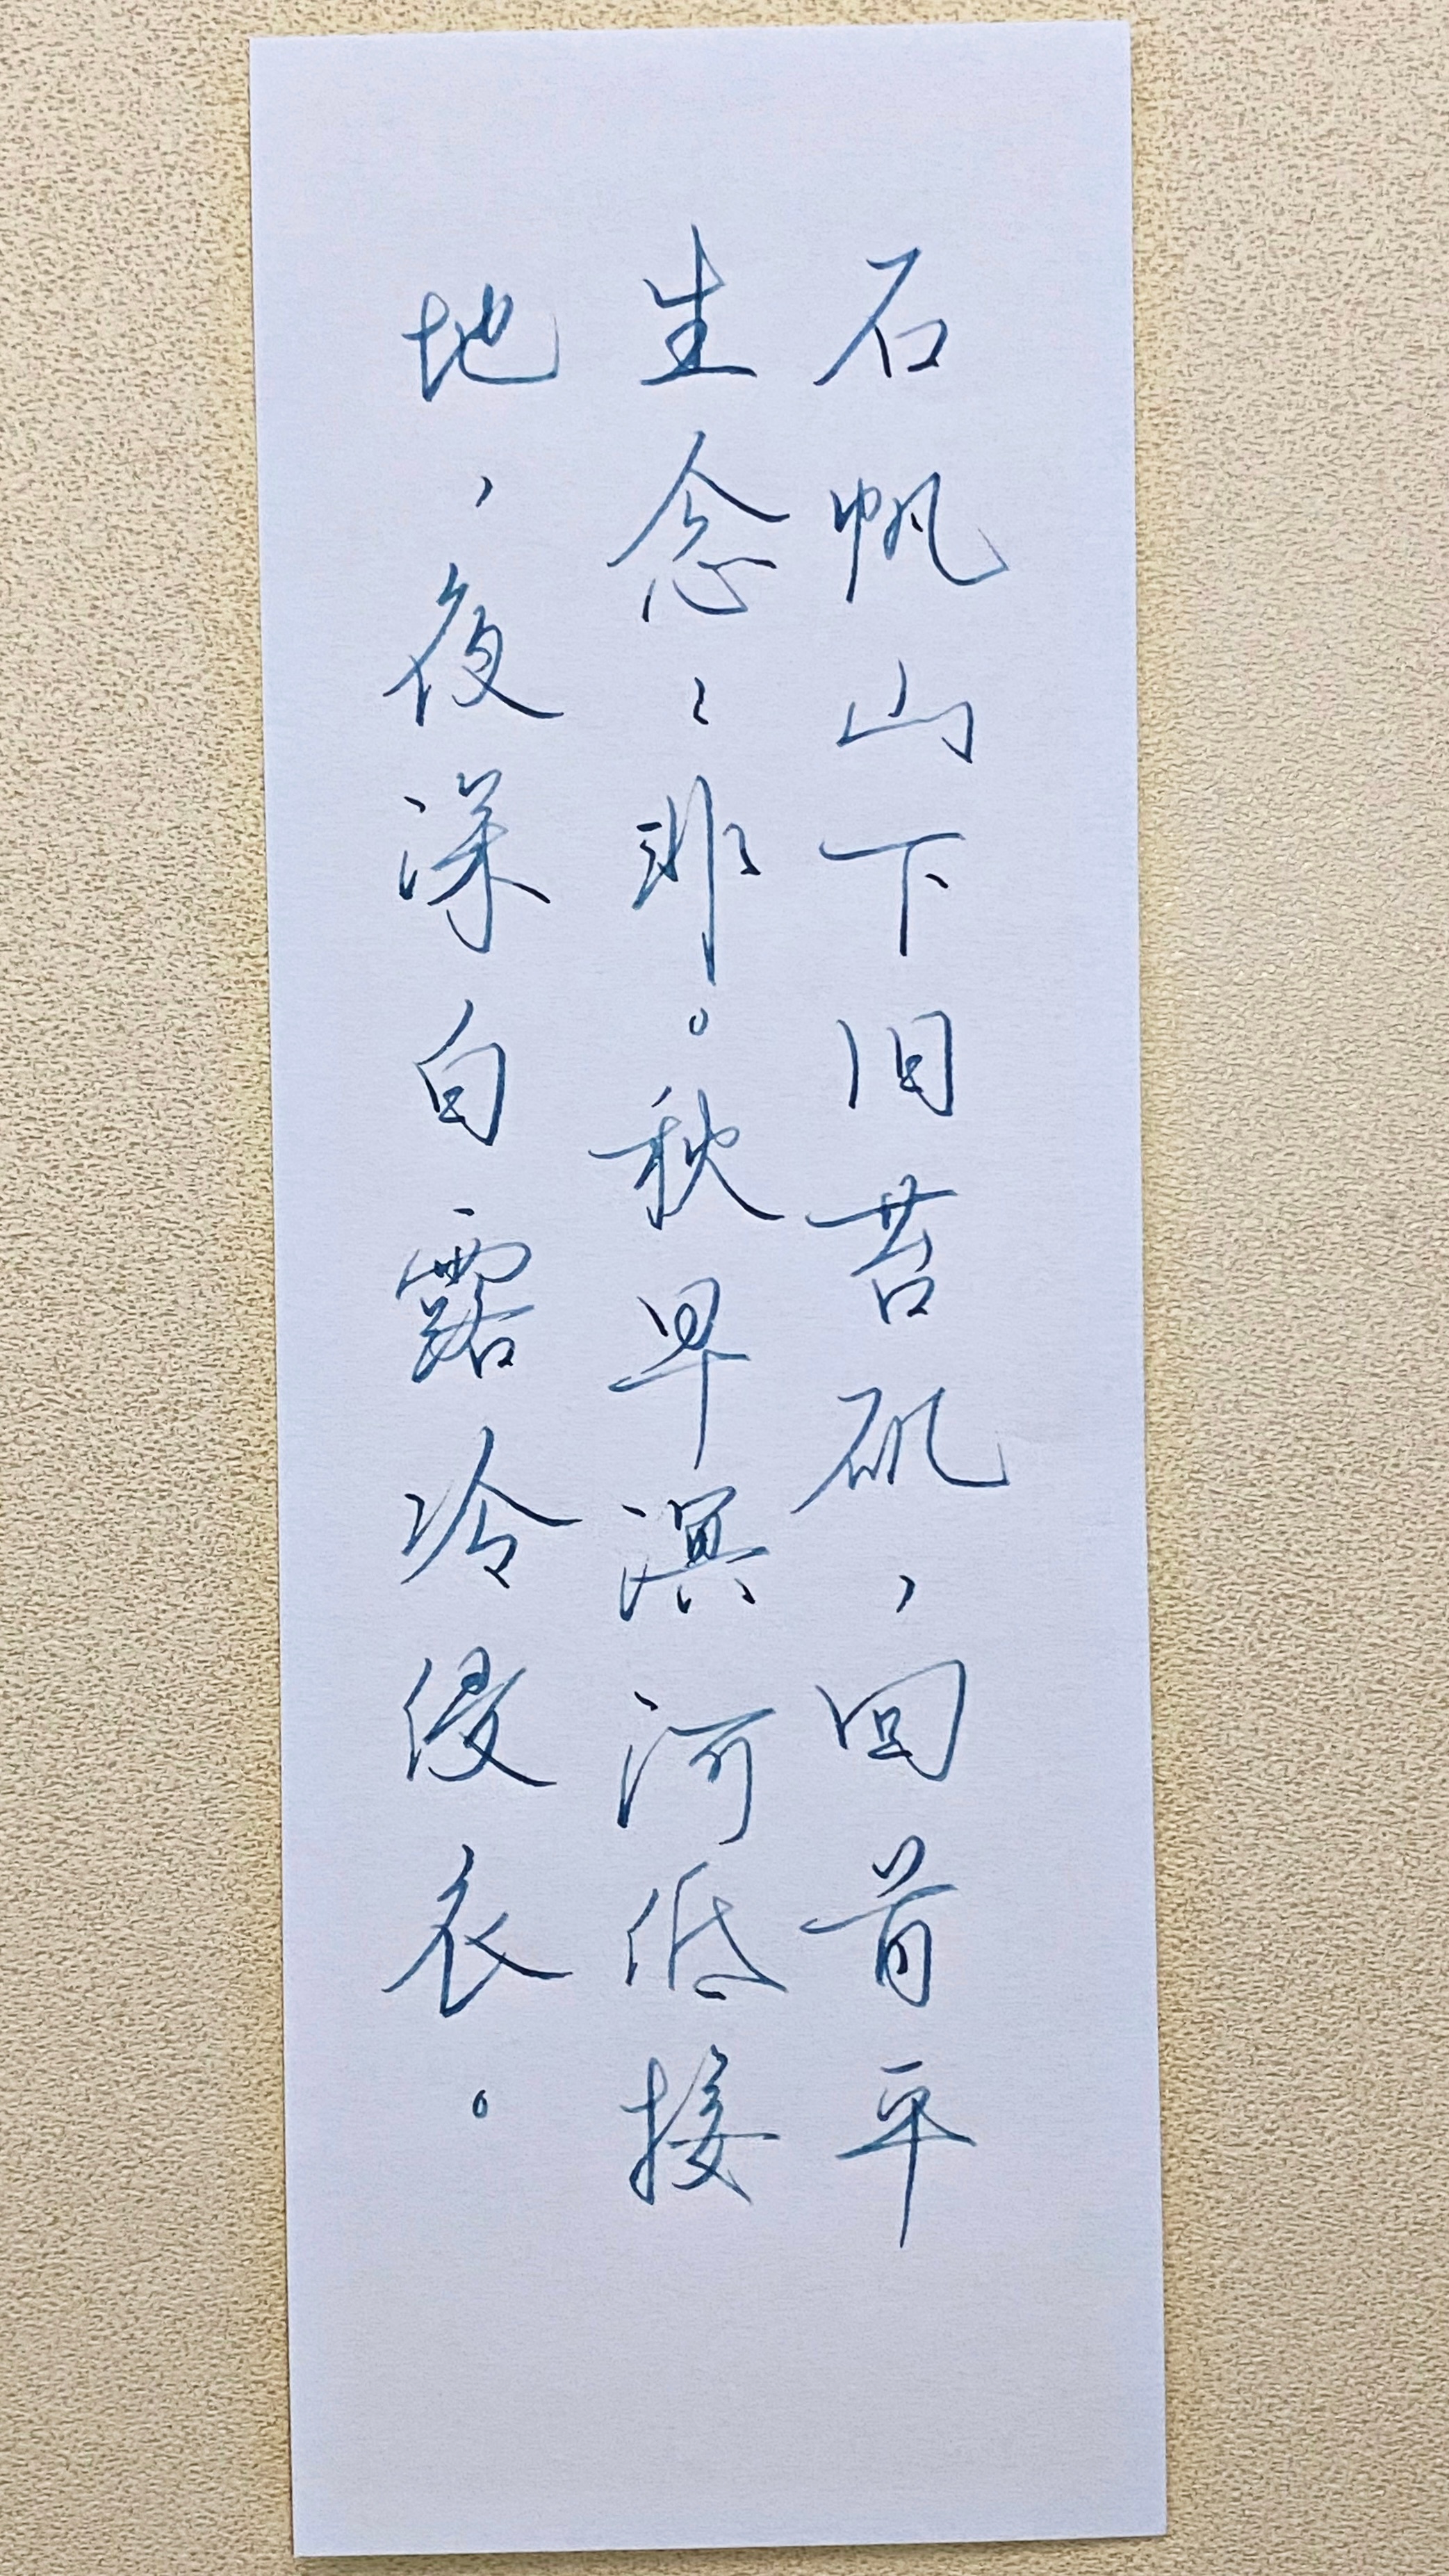 石帆山下旧苔矶，回首平
生念々非。秋早溟河低接
地，夜深白露冷侵衣。